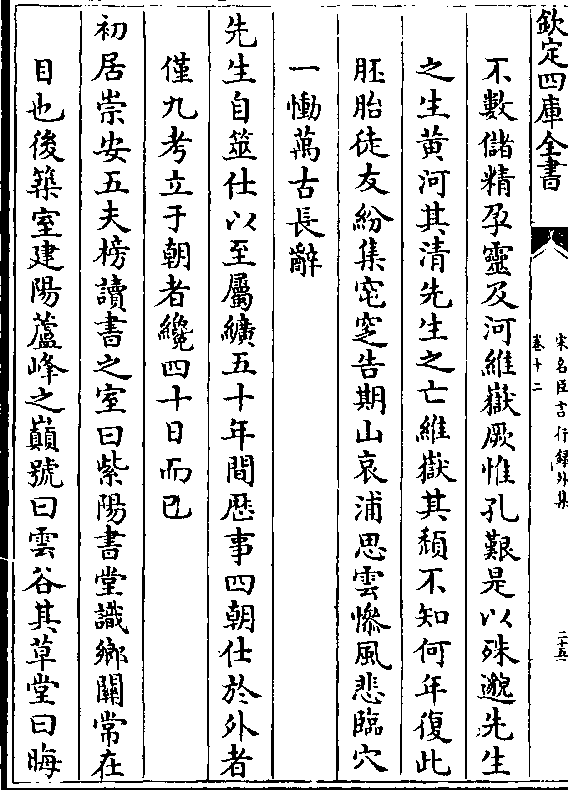 欽定四庫全書
宋名臣言行録外集
卷十二
二十五
不數儲精孕靈及河維嶽厥惟孔艱是以殊邈先生
之生黄河其清先生之亡維嶽其頽不知何年復此
胚胎徒友紛集窀穸告期山哀浦思雲慘風悲臨穴
一慟萬古長辭
先生自筮仕以至屬纊五十年間歴事四朝仕於外者
僅九考立于朝者纔四十日而已
初居崇安五夫榜讀書之室曰紫陽書堂識鄉關常在
目也後築室建陽蘆峰之巔號曰雲谷其草堂曰晦